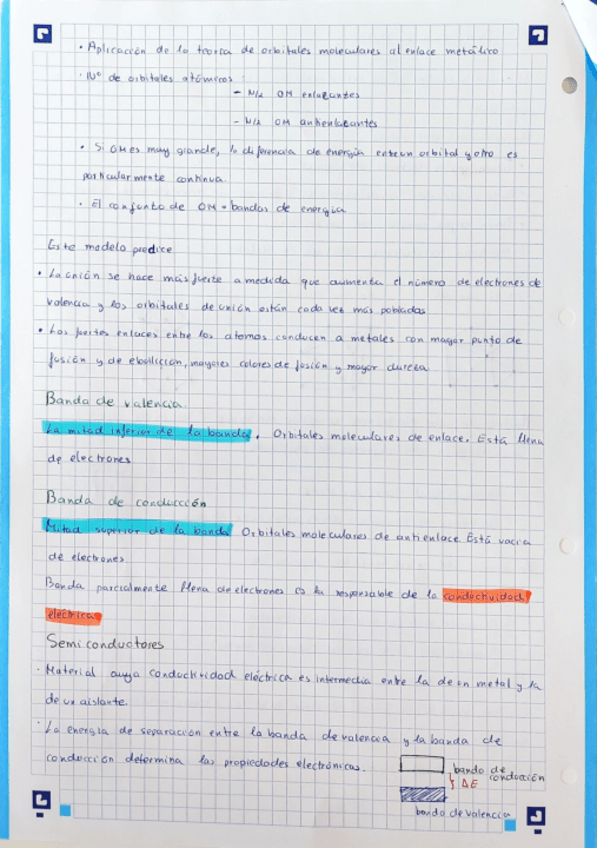 • Aplicación de la teoría de orbitales moleculares al enlace metálico
· Nº de orbitales atómicos:
- N/2 OM enlazantes
- N/2 OM antienlazantes
• Si OM es muy grande, la diferencia de energía entre un orbital y otro es
particularmente continua.
· El conjunto de OM = bandas de energía
Este modelo predice
• La unión se hace más fuerte a medida que aumenta el número de electrones de
valencia y los orbitales de unión están cada vez más poblados
• Los fuertes enlaces entre los atomos conducen a metales con mayor punto de
fusión y de ebullición, mayores calores de fusión y mayor dureza
Banda de valencia
La mitad inferior de la banda. Orbitales moleculares de enlace. Está llena
de electrones
Banda de conducción
Mitad superior de la banda Orbitales moleculares de antienlace Está vacia
de electrones
Banda parcialmente llena de electrones es la responsable de la conductividad
eléctrica
Semiconductores
· Material cuya conductividad eléctrica es intermedia entre la de un metal y la
de un aislante.
· La energía de separación entre la banda de valencia y la banda de
conducción determina las propiedades electrónicas.
banda de
conducción
ΔE
banda de valencia